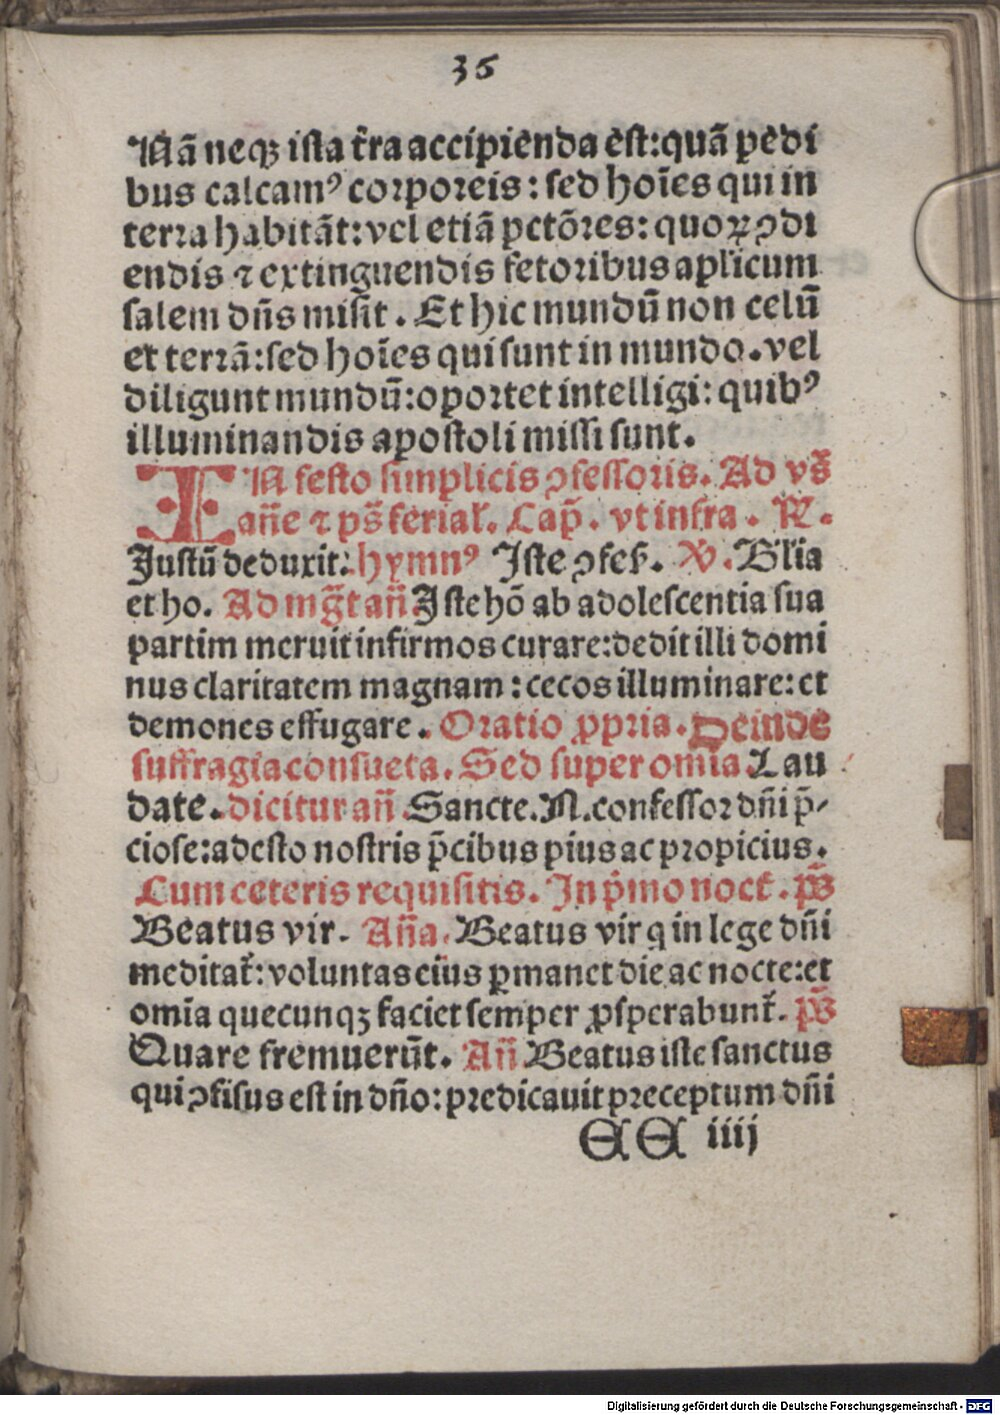 36
Nã neqꝫ ista t̃ra accipienda est: quã pedi
bus calcamꝰ corporeis: sed hoĩes qui in
terra habitãt: vel etiã pctõres: quoꝝ ꝯdi
endis ⁊ extinguendis fetoribus apl̃icum
salem dñs misit. Et hic mundũ non celũ
et terrã: sed hoĩes qui sunt in mundo. vel
diligunt mundũ: oportet intelligi: quibꝰ
illuminandis apostoli missi sunt.
IN festo simplicis ꝯfessoris. Ad vs̃
añe ⁊ ps̃ ferial̃. Cap̃. vt infra. ℟.
Justũ deduxit: hymnꝰ Iste ꝯfes̃. ℣. Bl̃ia
et ho. Ad mg̃t añ Iste hõ ab adolescentia sua
partim meruit infirmos curare: dedit illi domi
nus claritatem magnam: cecos illuminare: et
demones effugare. Oratio ꝓpria. Deinde
suffragia consueta. Sed super om̃ia Lau
date. dicitur añ Sancte. N. confessor dñi p̃-
ciose: adesto nostris p̃cibus pius ac propicius.
Cum ceteris requisitis. In p̃mo noct̃. ps̃
Beatus vir. Aña. Beatus vir q in lege dñi
meditat̃: voluntas eius ꝑmanet die ac nocte: et
omĩa quecunqꝫ faciet semper ꝓsperabunt̃. ps̃
Quare fremuerũt. Añ Beatus iste sanctus
qui ꝯfisus est in dño: predicauit preceptum dñi
EE iiij
Digitalisierung gefördert durch die Deutsche Forschungsgemeinschaft - DFG